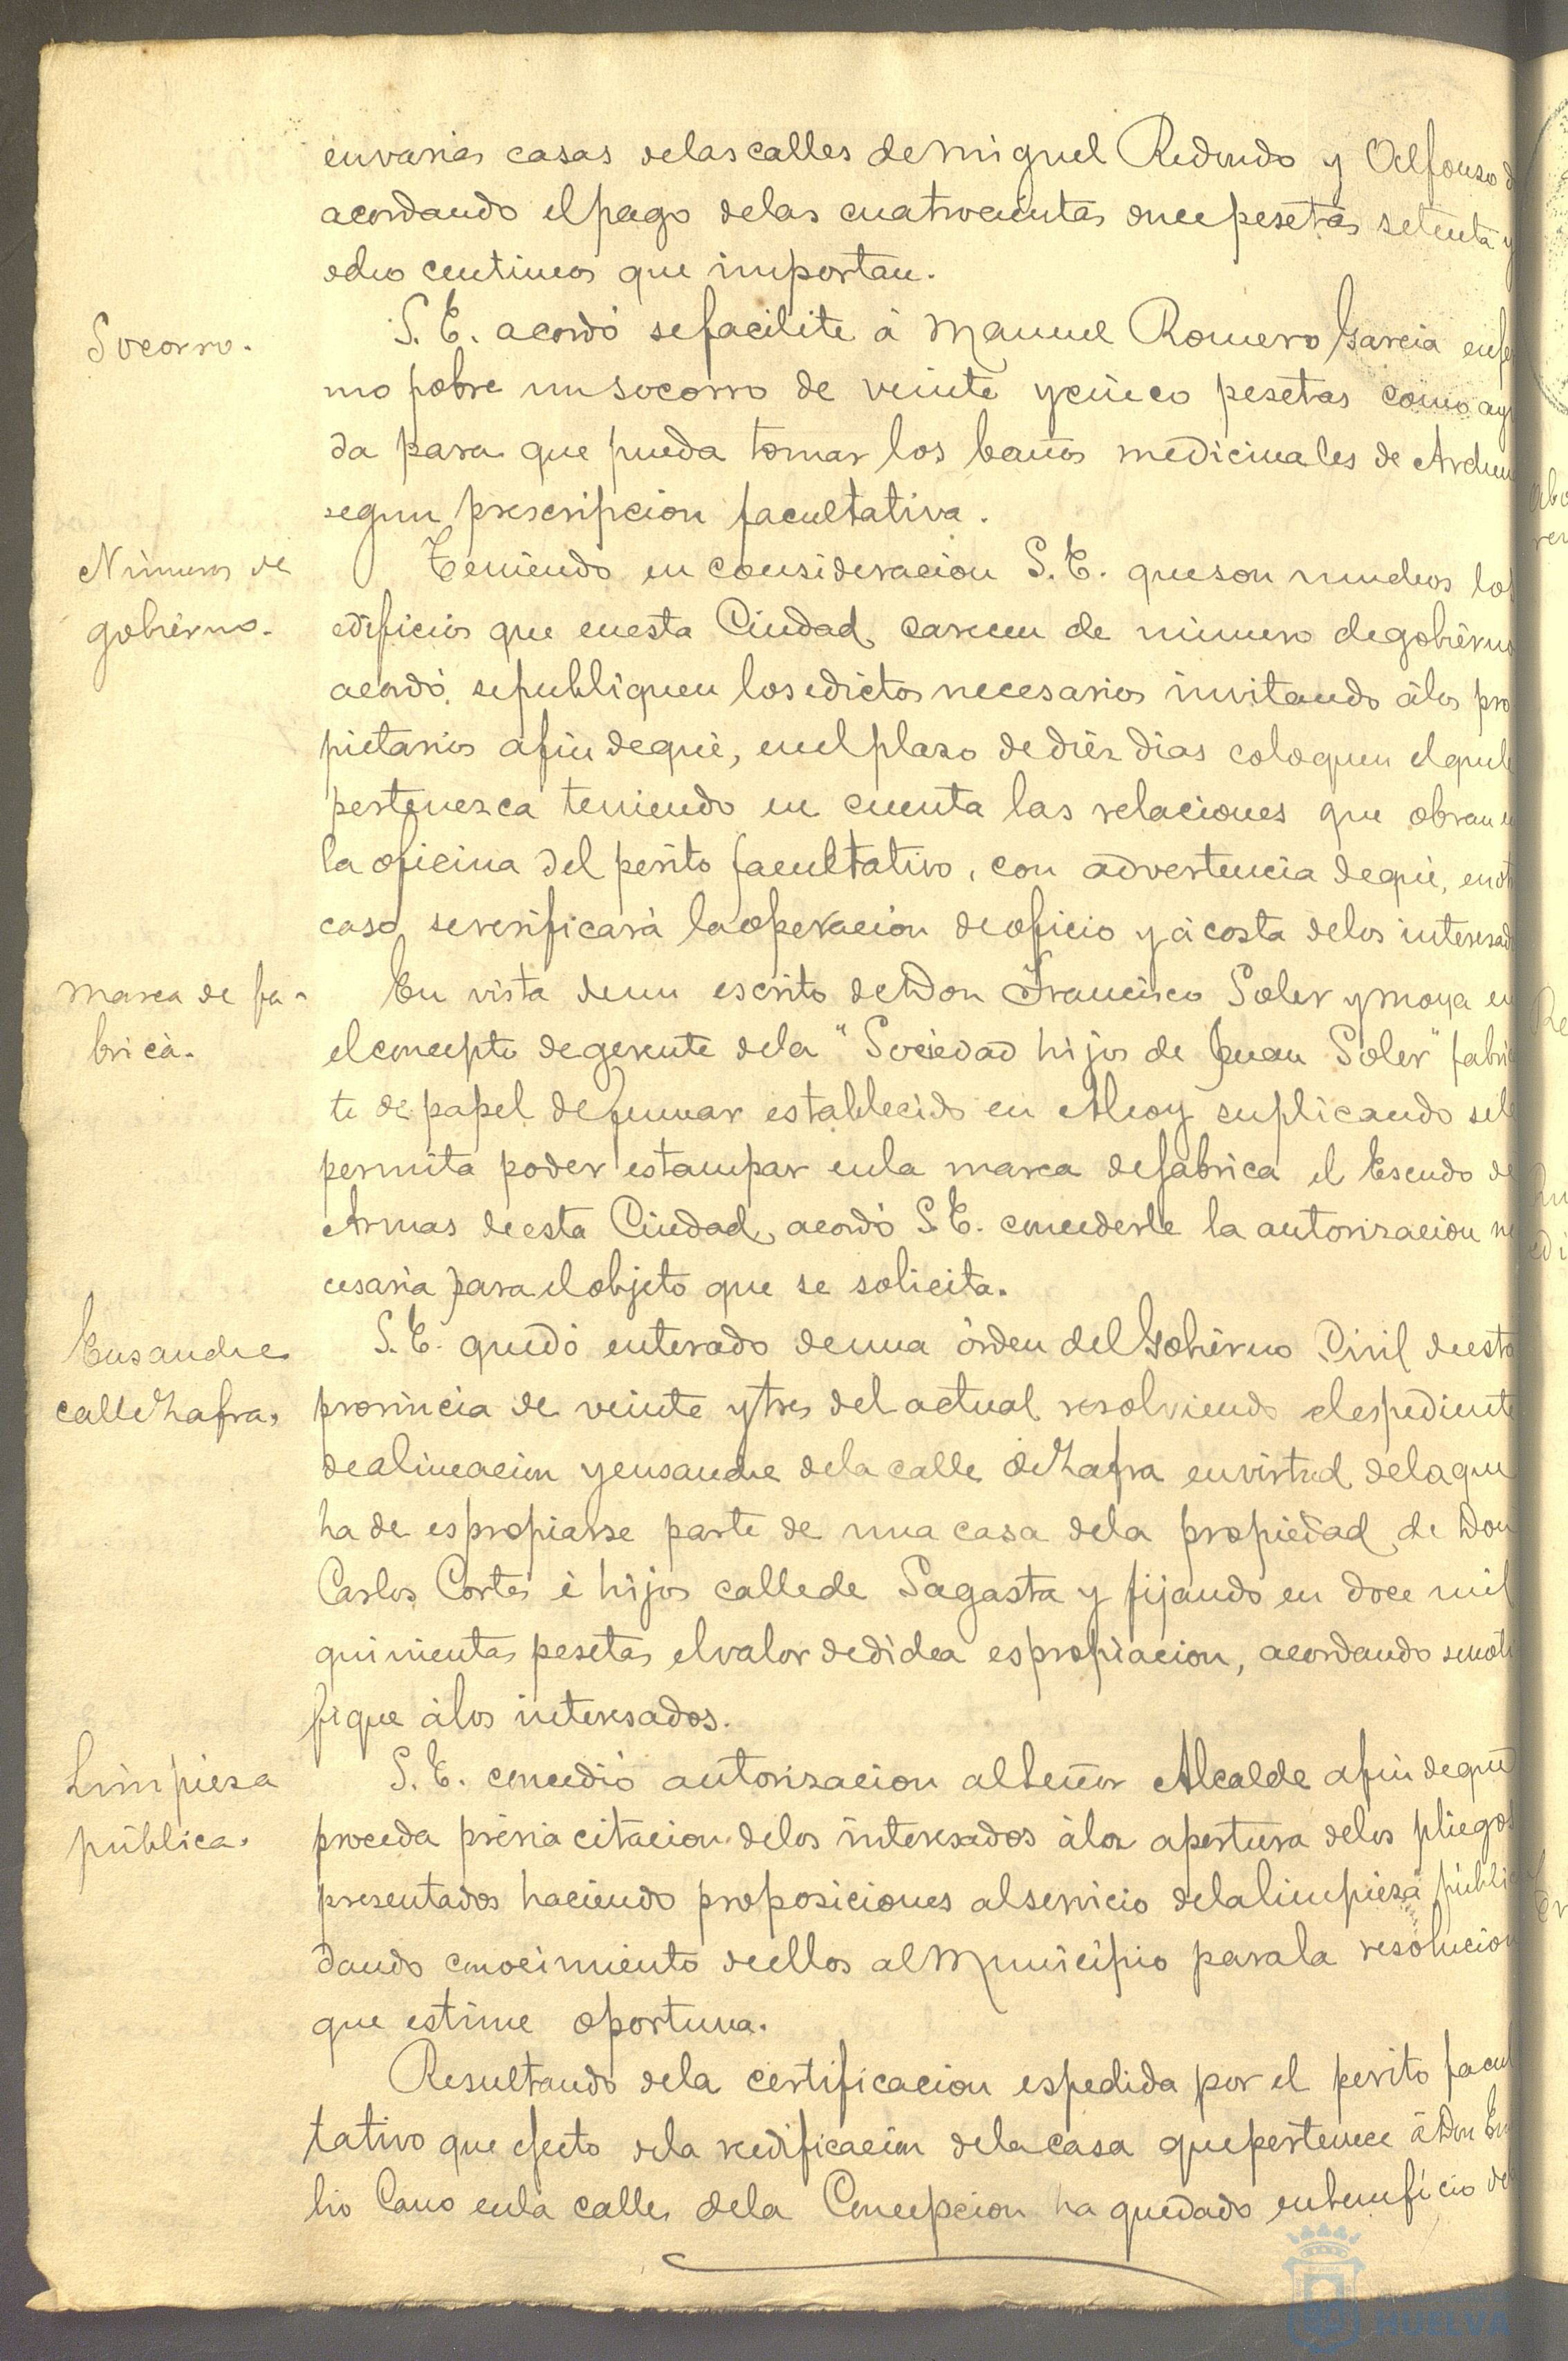 en varias casas de las calles de Miguel Redondo y Alfonso
acordando el pago de las cuatrocientas once pesetas setenta y
ocho centimos que importan.
Socorro.
S. E. acordó se facilite á Manuel Romero Garcia enfer
mo pobre un socorro de veinte y cinco pesetas como ayu
da para que pueda tomar los baños medicinales de
segun prescripcion facultativa.
Números de
gobierno.
Teniendo en consideracion S. E. que son muchos los
edificios que en esta Ciudad carecen de número de gobierno
acordó se publiquen los edictos necesarios invitando á los pro
pietarios a fin de que, en el plazo de diez dias coloquen el que le
pertenezca teniendo en cuenta las relaciones que obran en
la oficina del perito facultativo, con advertencia de que, en otro
caso se verificará la operacion de oficio y á costa de los interesad
Marca de fa-
brica.
En vista de un escrito de Don Francisco Soler y Moya en
el concepto de gerente de la "Sociedad hijos de Juan Soler" fabri
te de papel de fumar establecido en Alcoy suplicando se le
permita poder estampar en la marca de fábrica el Escudo de
Armas de esta Ciudad, acordó S. E. concederle la autorizacion ne
cesaria para el objeto que se solicita.
Ensanche
calle Zafra.
S. E. quedó enterado de una órden del Gobierno Civil de esta
provincia de veinte y tres del actual resolviendo el espediente
de alineacion y ensanche de la calle de Zafra en virtud de la que
ha de espropiarse parte de una casa de la propiedad de Don
Carlos Cortés é hijos calle de Sagasta y fijando en doce mil
quinientas pesetas el valor de dicha espropiacion, acordando se noti
fique á los interesados.
Limpieza
pública.
S. E. concedió autorizacion al Señor Alcalde a fin de que
proceda prévia citacion de los interesados á la apertura de los pliegos
presentados haciendo proposiciones al servicio de la limpieza públic
dando conocimiento de ellos al Municipio para la resolucion
que estime oportuna.
Resultando de la certificacion espedida por el perito facul
tativo que efecto de la reedificacion de la casa que pertenece á Don Em
lio Cano en la calle de la Concepcion ha quedado en beneficio de
HUELVA